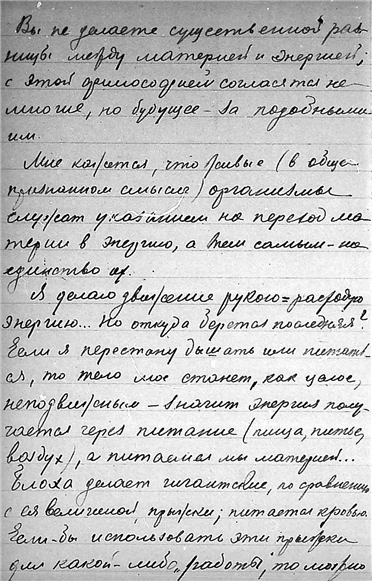 Вы не делаете существенной раз-
ницы между материей и энергией;
с этой философией согласятся не
многие, но будущее – за подобными
им.
Мне кажется, что живые (в обще-
признанном смысле) организмы
служат указанием на переход ма-
терии в энергию, а тем самым – на
единство их.
Я делаю движение рукою = расходую
энергию... Но откуда берется последняя?
Если я перестану дышать или питать-
ся, то тело мое станет, как целое,
неподвижным – значит энергия полу-
чается через питание (пища, питье,
воздух), а питаемся мы материей...
Блоха делает гигантские, по сравнению
с ея величиной, прыжки; питается кровью.
Если-бы использовать эти прыжки
для какой-либо „работы", то можно